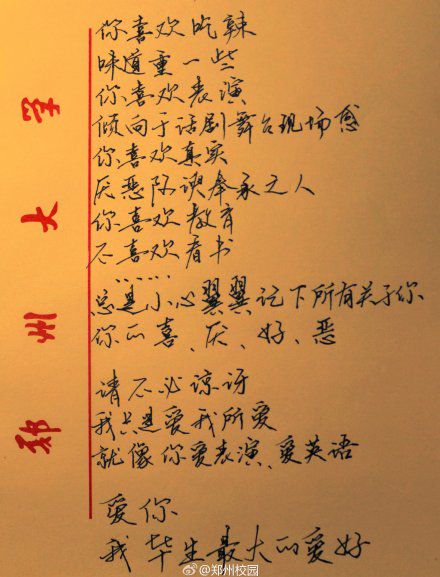 你喜欢吃辣
味道重一些
你喜欢表演
倾向于话剧舞台现场感
你喜欢真实
厌恶阿谀奉承之人
你喜欢教育
不喜欢看书
……
总是小心翼翼记下所有关于你
你的喜、厌、好、恶
请不必惊讶
我只是爱我所爱
就像你爱表演、爱英语
爱你
我毕生最大的爱好
郑州大学
@郑州校园